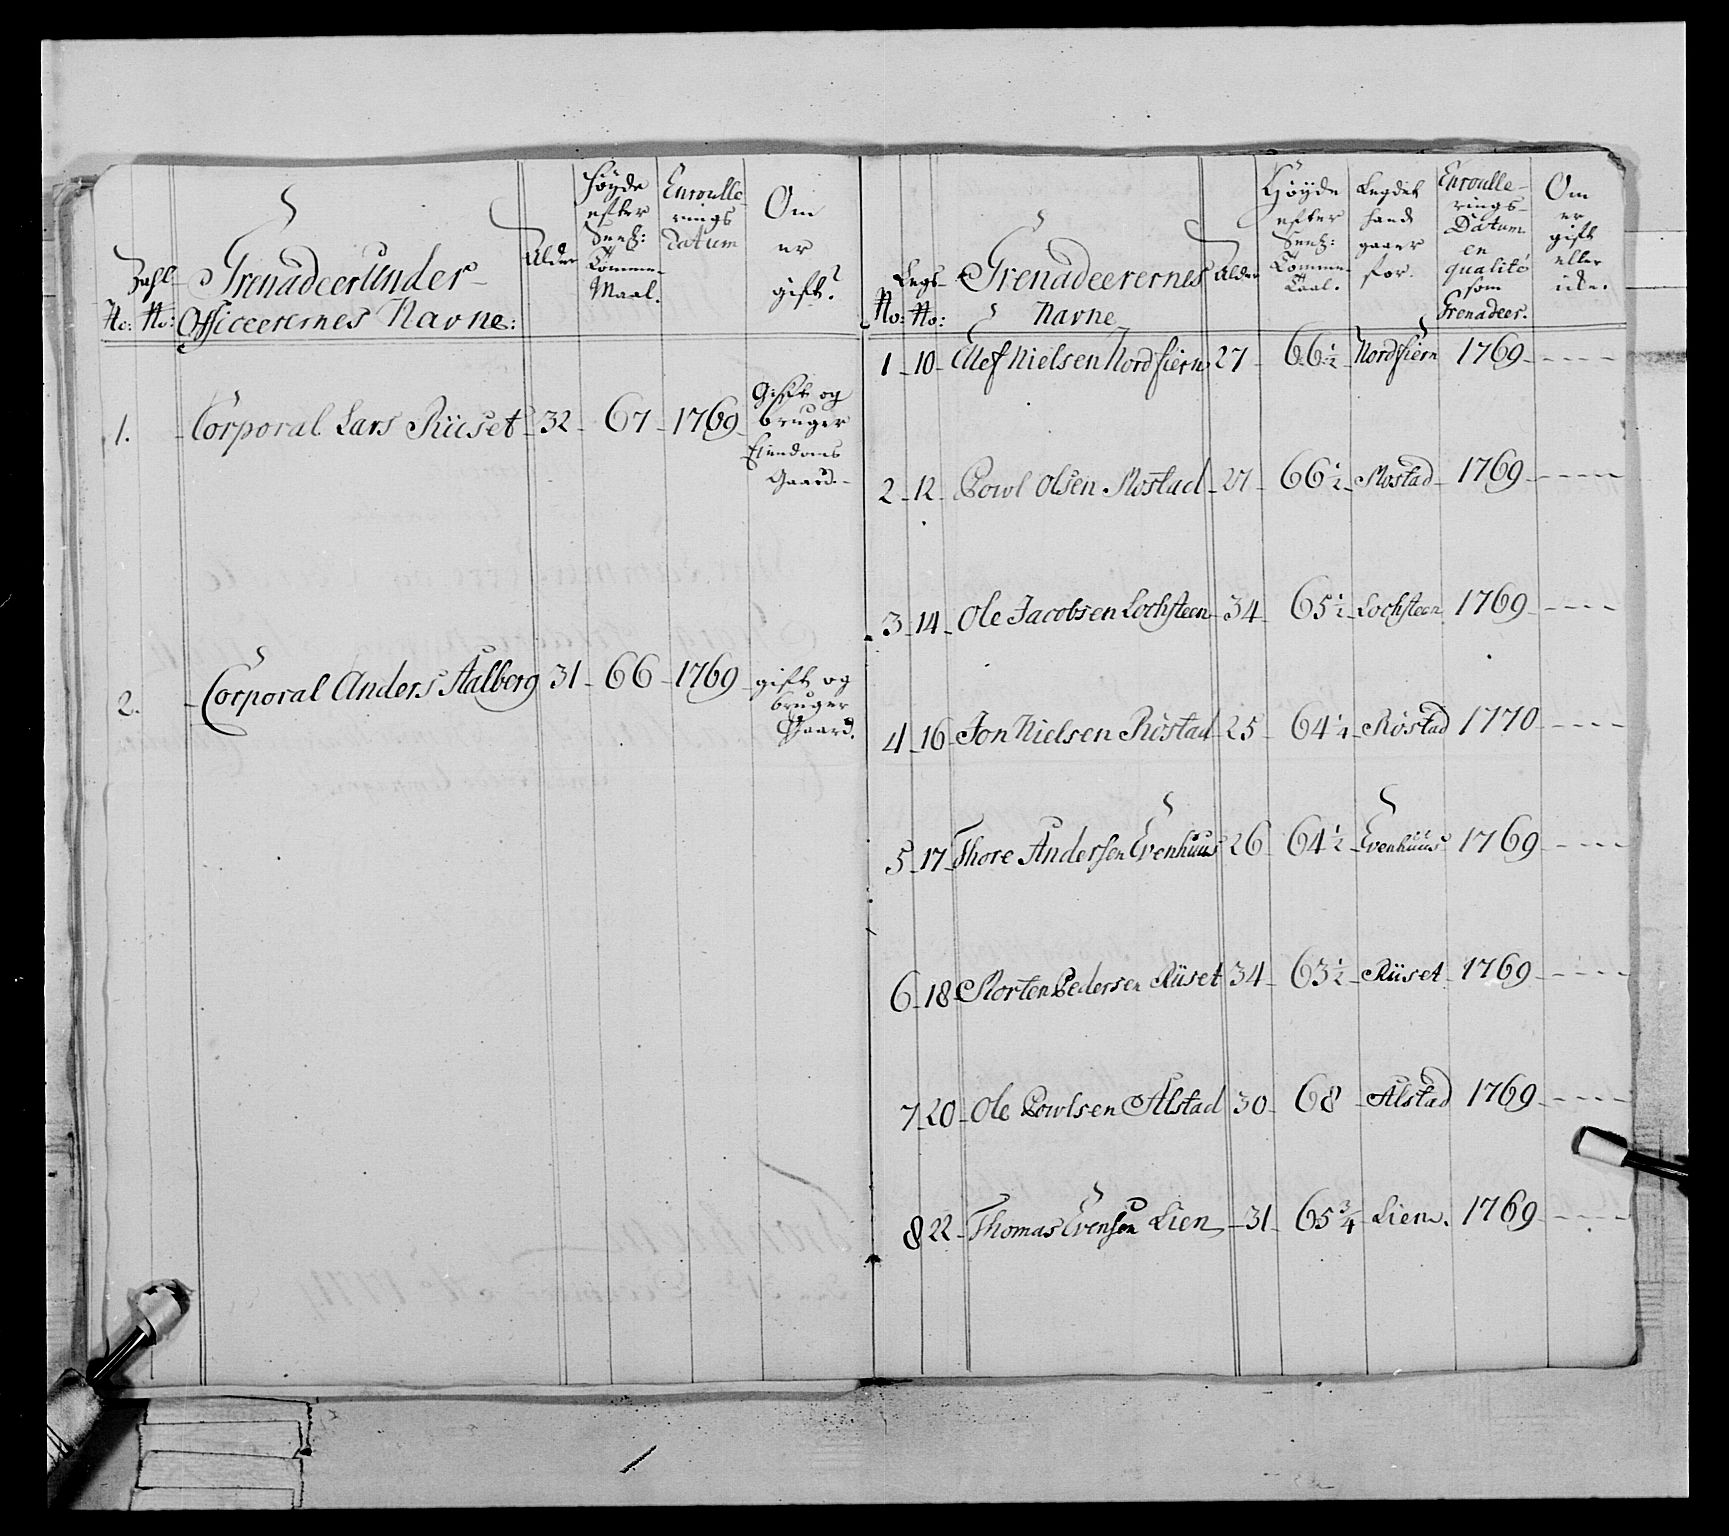 No: No: Grenadeer Under-
Officerernes Navne:
Alder
Höyde
efter
Maal.
Enroulle-
rings
Datum
Om
er
gift?
1. Corporal Lars Rüset 32 67 1769 Gift og
bruger
Eiendoms
Gaard.
2. Corporal Anders Aalberg 31 66 1769 gift og
bruger
Gaard.
No: Legs-
No:
Grenadeerernes
Navne
Alder
Höyde
efter
Legdet
hand
gaaer
for.
Enroulle-
rings-
Datum
en
qualité
som
Grenadeer.
Om
er
gift
eller
icke.
1 10 Ellef Nielsen Nordfiern 27 66½ Nordfiern 1769 - - - -
2 12 Powl Olsen Mostad 27 66½ Mostad 1769 - - - -
3 14 Ole Jacobsen Lochsteen 34 65½ Lochsteen 1769 - - - -
4 16 Jon Nielsen Röstad 25 64¼ Röstad 1770 - - - -
5 17 Thore Andersen Evenhuus 26 64½ Evenhuus 1769 - - - -
6 18 Morten Pedersen Rüset 34 63½ Rüset 1769 - - - -
7 20 Ole Powlsen Alstad 30 68 Alstad 1769 - - - -
8 22 Thomas Evensen Lien 31 65¾ Lien. 1769 - - - -